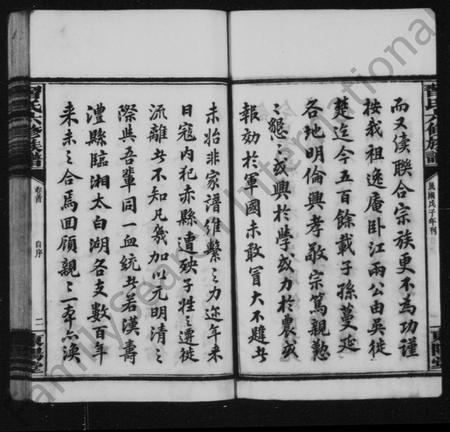 而又渎聯合宗族更不為功謹
按我祖逸庵卧江兩公由吳徙
楚迄今五百餘載子孫蔓延
各地明倫興孝敬宗篤親懃
懃之或興於學或力於農或
報効於軍國未敢冒大不韙此
未始非家譜維繫之力迩年来
日寇内犯赤縣遭殃子姓之遷徙
流離者不知凡幾加以元明清之
際與吾輩同一血統者若漢壽
澧縣臨湘太白湖各支數百年
来未之合焉回顧親之一本
民國戊子年刊
氏六修族譜
卷首
自序
二
FamilySearch International